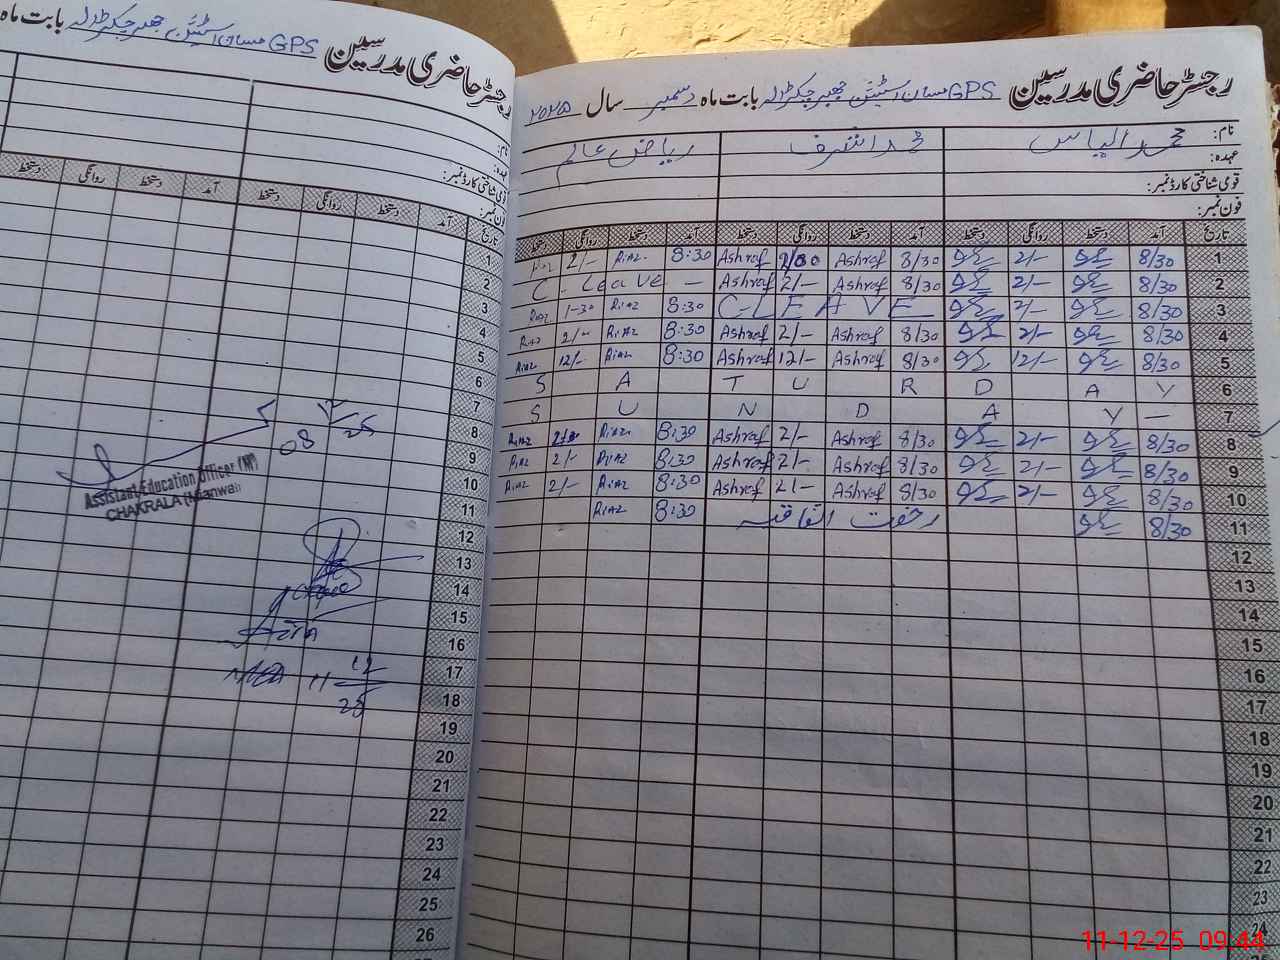 رجسٹر حاضری مدرسین GPS مسان اسٹیشن چھبر چکڑالہ بابت ماہ دسمبر سال ۲۰۲۵
نام: محمد الیاس محمد اشرف ریاض عالم
عہدہ:
قومی شناختی کارڈ نمبر:
فون نمبر:
تاریخ آمد دستخط روانگی دستخط آمد دستخط روانگی دستخط آمد دستخط روانگی دستخط
2/- Riaz 8:30 Ashraf Ashraf 8/30 2/- 8/30 1
C. Leave — Ashraf 2/- Ashraf 8/30 2/- 8/30 2
Riaz 1-30 Riaz 8:30 C-LEAVE 2/- 8/30 3
Riaz 2/- Riaz 8:30 Ashraf 2/- Ashraf 8/30 2/- 8/30 4
Riaz 12/- Riaz 8:30 Ashraf 12/- Ashraf 8/30 12/- 8/30 5
S A T U R D A Y 6
S U N D A Y — 7
Riaz Riaz 8:30 Ashraf 2/- Ashraf 8/30 2/- 8/30 8
Riaz 2/- Riaz 8:30 Ashraf 2/- Ashraf 8/30 2/- 8/30 9
Riaz 2/- Riaz 8:30 Ashraf 2/- Ashraf 8/30 2/- 8/30 10
Riaz 8:30 رخصت اتفاقیہ 8/30 11
12
13
14
15
16
17
18
19
20
21
22
23
24
رجسٹر حاضری مدرسین GPS مسان اسٹیشن چھبر چکڑالہ بابت ماہ
نام:
عہدہ:
قومی شناختی کارڈ نمبر:
فون نمبر:
تاریخ آمد دستخط روانگی دستخط آمد دستخط روانگی دستخط
1
2
3
4
5
6
7
8
9
10
11
12
13
14
15
16
17
18
19
20
21
22
23
24
25
26
08 12 25
Assistant Education Officer (M)
CHAKRALA (Mianwali)
11 12 25
11-12-25 09:44